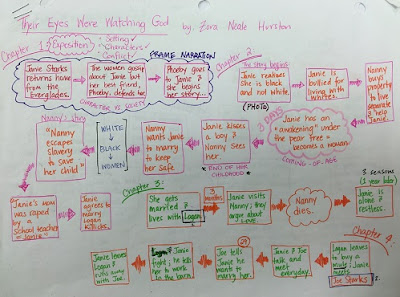 Their Eyes Were Watching God by: Zora Neale Hurston
Chapter 1:
Exposition
Setting
Characters
Conflict
FRAME NARRATION
Janie Starks
returns home
from the
Everglades.
The women gossip
about Janie but
her best friend,
Phoeby, defends her.
Phoeby goes
to Janie &
she begins
her story...
CHARACTER VS. SOCIETY
Chapter 2:
The story begins:
Janie realizes
she is black
and not white.
(PHOTO)
Janie is
bullied for
living with
whites.
Nanny buys
property to
live separate
& help Janie.
Janie has an
"awakening" under
the pear tree &
becomes a woman.
COMING-OF-AGE
Janie kisses
a boy &
Nanny sees
her.
"END OF HER
CHILDHOOD"
Nanny wants
Janie to
marry to
keep her
safe.
WHITE
BLACK
WOMEN
Nanny's story
"Nanny
escapes
slavery
to save
her child"
Janie's mom
was raped by
a school teacher
Janie
agrees to
marry
Logan
Killicks.
Chapter 3:
She gets
married &
lives with Logan.
3
months
Janie visits
Nanny; they
argue about
LOVE
Nanny
dies.
3 seasons
(1 year later)
Janie is
alone &
restless.
Chapter 4:
Logan leaves
to buy a
mule; Janie
meets
Joe Starks.
Janie & Joe
talk and
meet
everyday.
Joe tells
Janie he
wants to
marry her.
Logan & Janie
fight; he tells
her to work
in the barn.
Janie leaves
Logan &
runs away
with Joe.